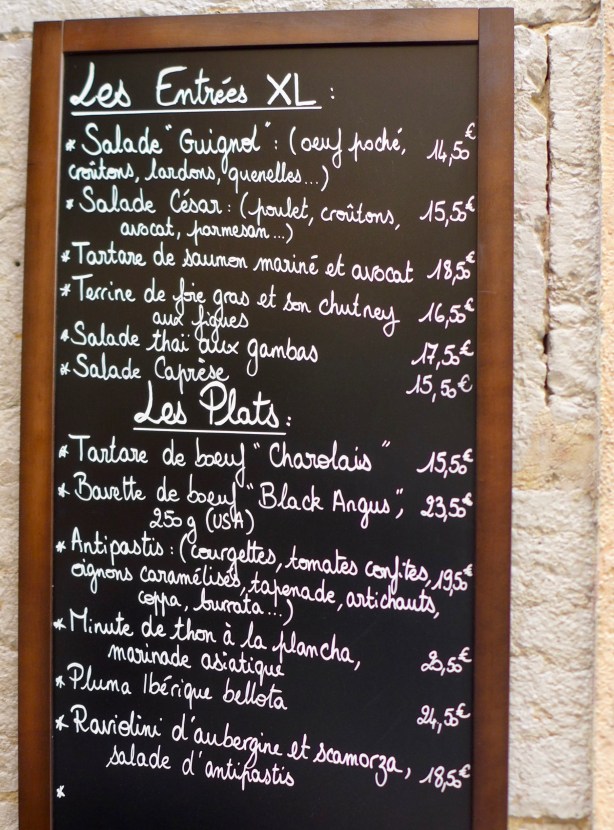 Les Entrées XL :
* Salade "Guignol" : (oeuf poché, 14,50€
croûtons, lardons, quenelles...)
* Salade César : (poulet, croûtons, 15,50€
avocat, parmesan...)
* Tartare de saumon mariné et avocat 18,50€
* Terrine de foie gras et son chutney 16,50€
aux figues
* Salade thaï aux gambas 17,50€
* Salade Caprèse 15,50€
Les Plats :
* Tartare de boeuf "Charolais" 15,50€
* Bavette de boeuf "Black Angus", 23,50€
250 g (USA)
* Antipastis : (courgettes, tomates confites, 19,50€
oignons caramélisés, tapenade, artichauts,
coppa, burrata...)
* Minute de thon à la plancha, 20,50€
marinade asiatique
* Pluma Ibérique bellota 24,50€
* Raviolini d'aubergine et scamorza, 18,50€
salade d'antipastis
*